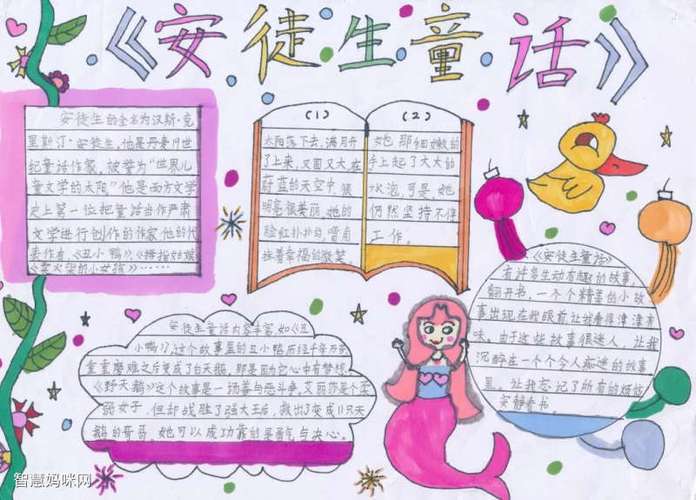 《安徒生童话》
安徒生的全名为汉斯·克
里斯汀·安徒生,他是丹麦19世
纪童话作家,被誉为“世界儿
童文学的太阳”他是西方文学
史上第一位把童话当作严肃
文学进行创作的作家他的代
表作有《丑小鸭》《拇指姑娘》
《卖火柴的小女孩》……
(1)
太阳落下去,满月升
了上来,又圆又大,在
蔚蓝的天空中很
明亮很美丽,她的
脸红扑扑的,嘴角
挂着幸福的微笑。
(2)
她那细嫩的
手上起了大大的
水泡,可是她
仍然坚持不停
工作。
安徒生童话内容丰富,如《丑
小鸭》,这个故事里的丑小鸭历经千辛万苦
重重磨难之后变成了白天鹅,那是因为它心中有梦想
《野天鹅》这个故事是一场善与恶斗争,艾丽莎是个柔
弱女子,但却战胜了强大王后,救出了变成11只天
鹅的哥哥,她可以成功靠的是勇气与决心。
《安徒生童话》
有许多生动有趣的故事,
翻开书,一个个精美的小故
事出现在我眼前,让我看得津津有
味。由于这些故事很迷人,让我
沉醉在一个个令人痴迷的故事
里,让我忘记了所有的烦恼
安静看书。
智慧妈咪网